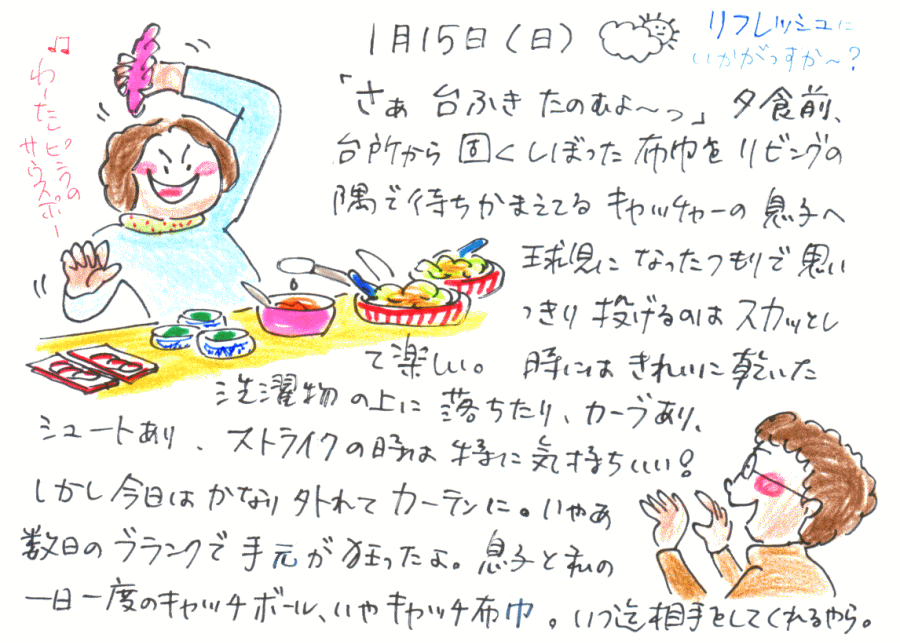 1月15日(日)
リフレッシュに
いかがっすか〜?
♫わーたしピンクの
サウスポー
「さぁ 台ふき たのむよ〜っ」夕食前、
台所から 固くしぼった 布巾を リビングの
隅で待ちかまえてる キャッチャーの 息子へ
球児に なったつもりで 思い
っきり 投げるのは スカッとし
て楽しい。 時には きれいに 乾いた
洗濯物 の上に 落ちたり、カーブあり、
シュートあり、ストライクの時は 特に 気持ちいい!
しかし今日は かなり 外れて カーテンに。いやぁ
数日の ブランクで 手元が 狂ったよ。息子と 私の
一日一度のキャッチボール、いや キャッチ布巾。いつ迄 相手をしてくれるやら。